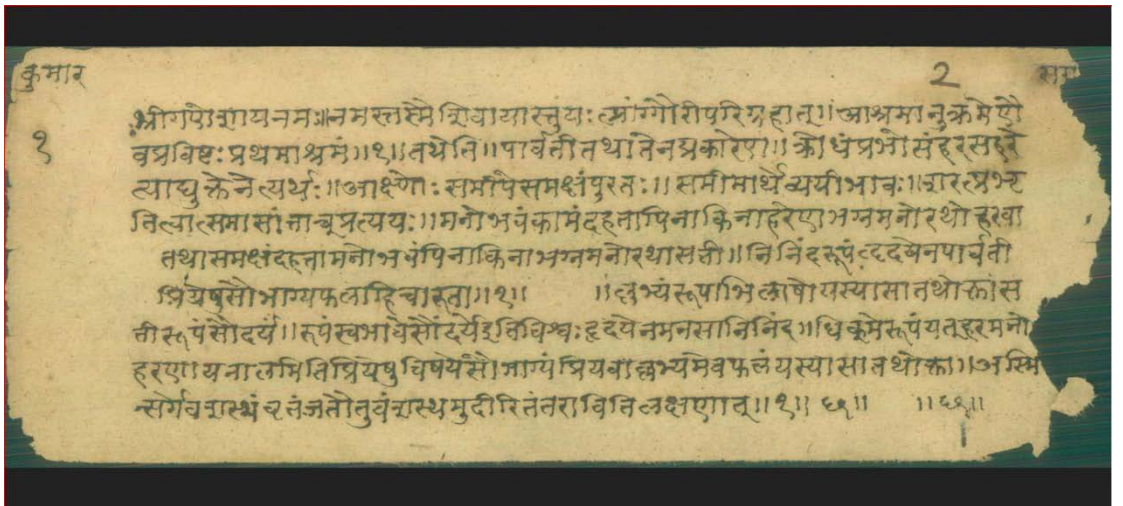 कुमार 2 सग
श्रीगणेशायनमः॥नमस्तस्मैशिवायास्तुयः त्मांग्गौरीपरिग्रहात्॥आश्रमानुक्रमेणै
१
वप्रविष्टः प्रथमाश्रमं॥१॥तथेति॥पार्वतीतथातेनप्रकारेण॥क्रोधंप्रभोसंहरसंहरे
त्याद्युक्तेनेत्यर्थः॥आक्ष्णोः समीपेसमक्षंपुरतः॥समीमार्थेव्ययीभावः॥शरत्प्रभृ
तित्वात्समासांताच्प्रत्ययः॥मनोभवंकामंदहतापिनाकिनाहरेणभग्नमनोरथोहरवा
तथासमक्षंदहतामनोभवंपिनाकिनाभग्नमनोरथासती॥निनिंदरूपंहृदयेनपार्वती
प्रियेषुसौभाग्यफलाहिचारुता॥१॥ ॥लभ्यंरूपाभिलाषोयस्यासातथोक्तांस
तीरूपंसौंदर्यं॥रूपंस्वभावेसौंदर्यइतिविश्वः हृदयेनमनसानिनिंद॥धिक्मेरूपंयत्हरमनो
हरणायनालमितिप्रियेषुविषयेसौभाग्यंप्रियवाल्लभ्यमेवफलंयस्यासातथोक्ता॥अस्मि
न्सर्गेवंशस्थंवृतंजतौतुवंशस्थमुदीरितंतराविनिलक्षणात्॥१॥ ६१॥ ॥६१॥